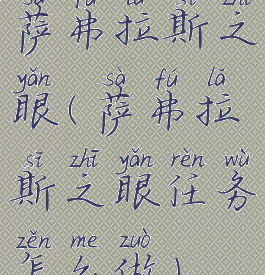 sà fú lā sī zhī
萨弗拉斯之
yǎn sà fú lā
眼(萨弗拉
sī zhī yǎn rèn wù
斯之眼任务
zěn me zuò
怎么做)